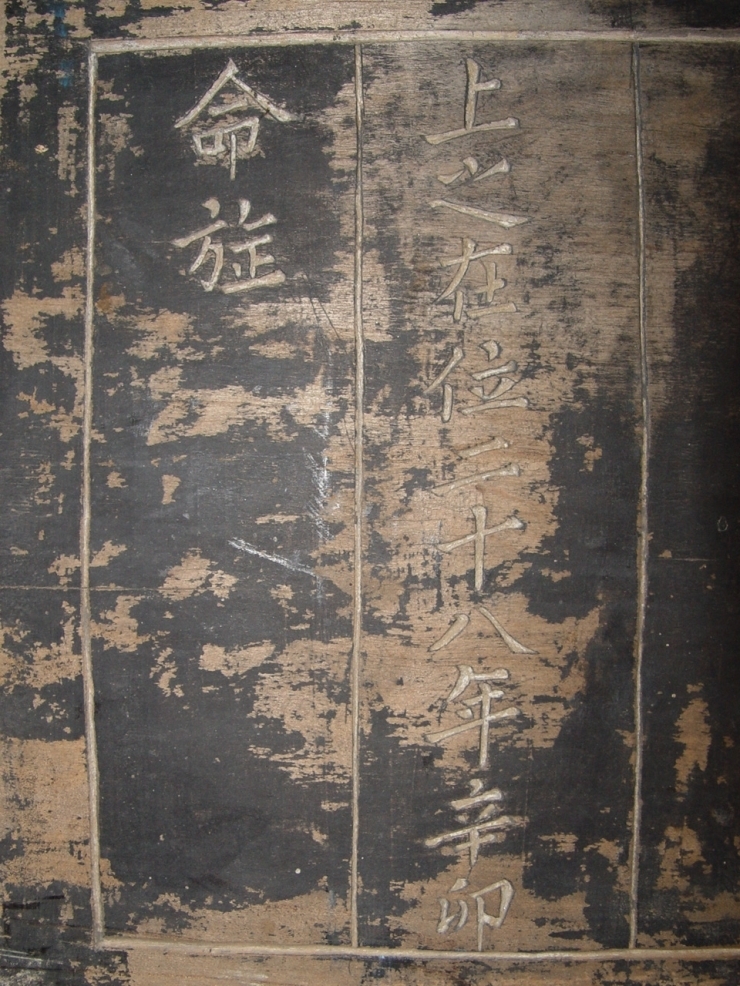 上之在位二十八年辛卯
命旌